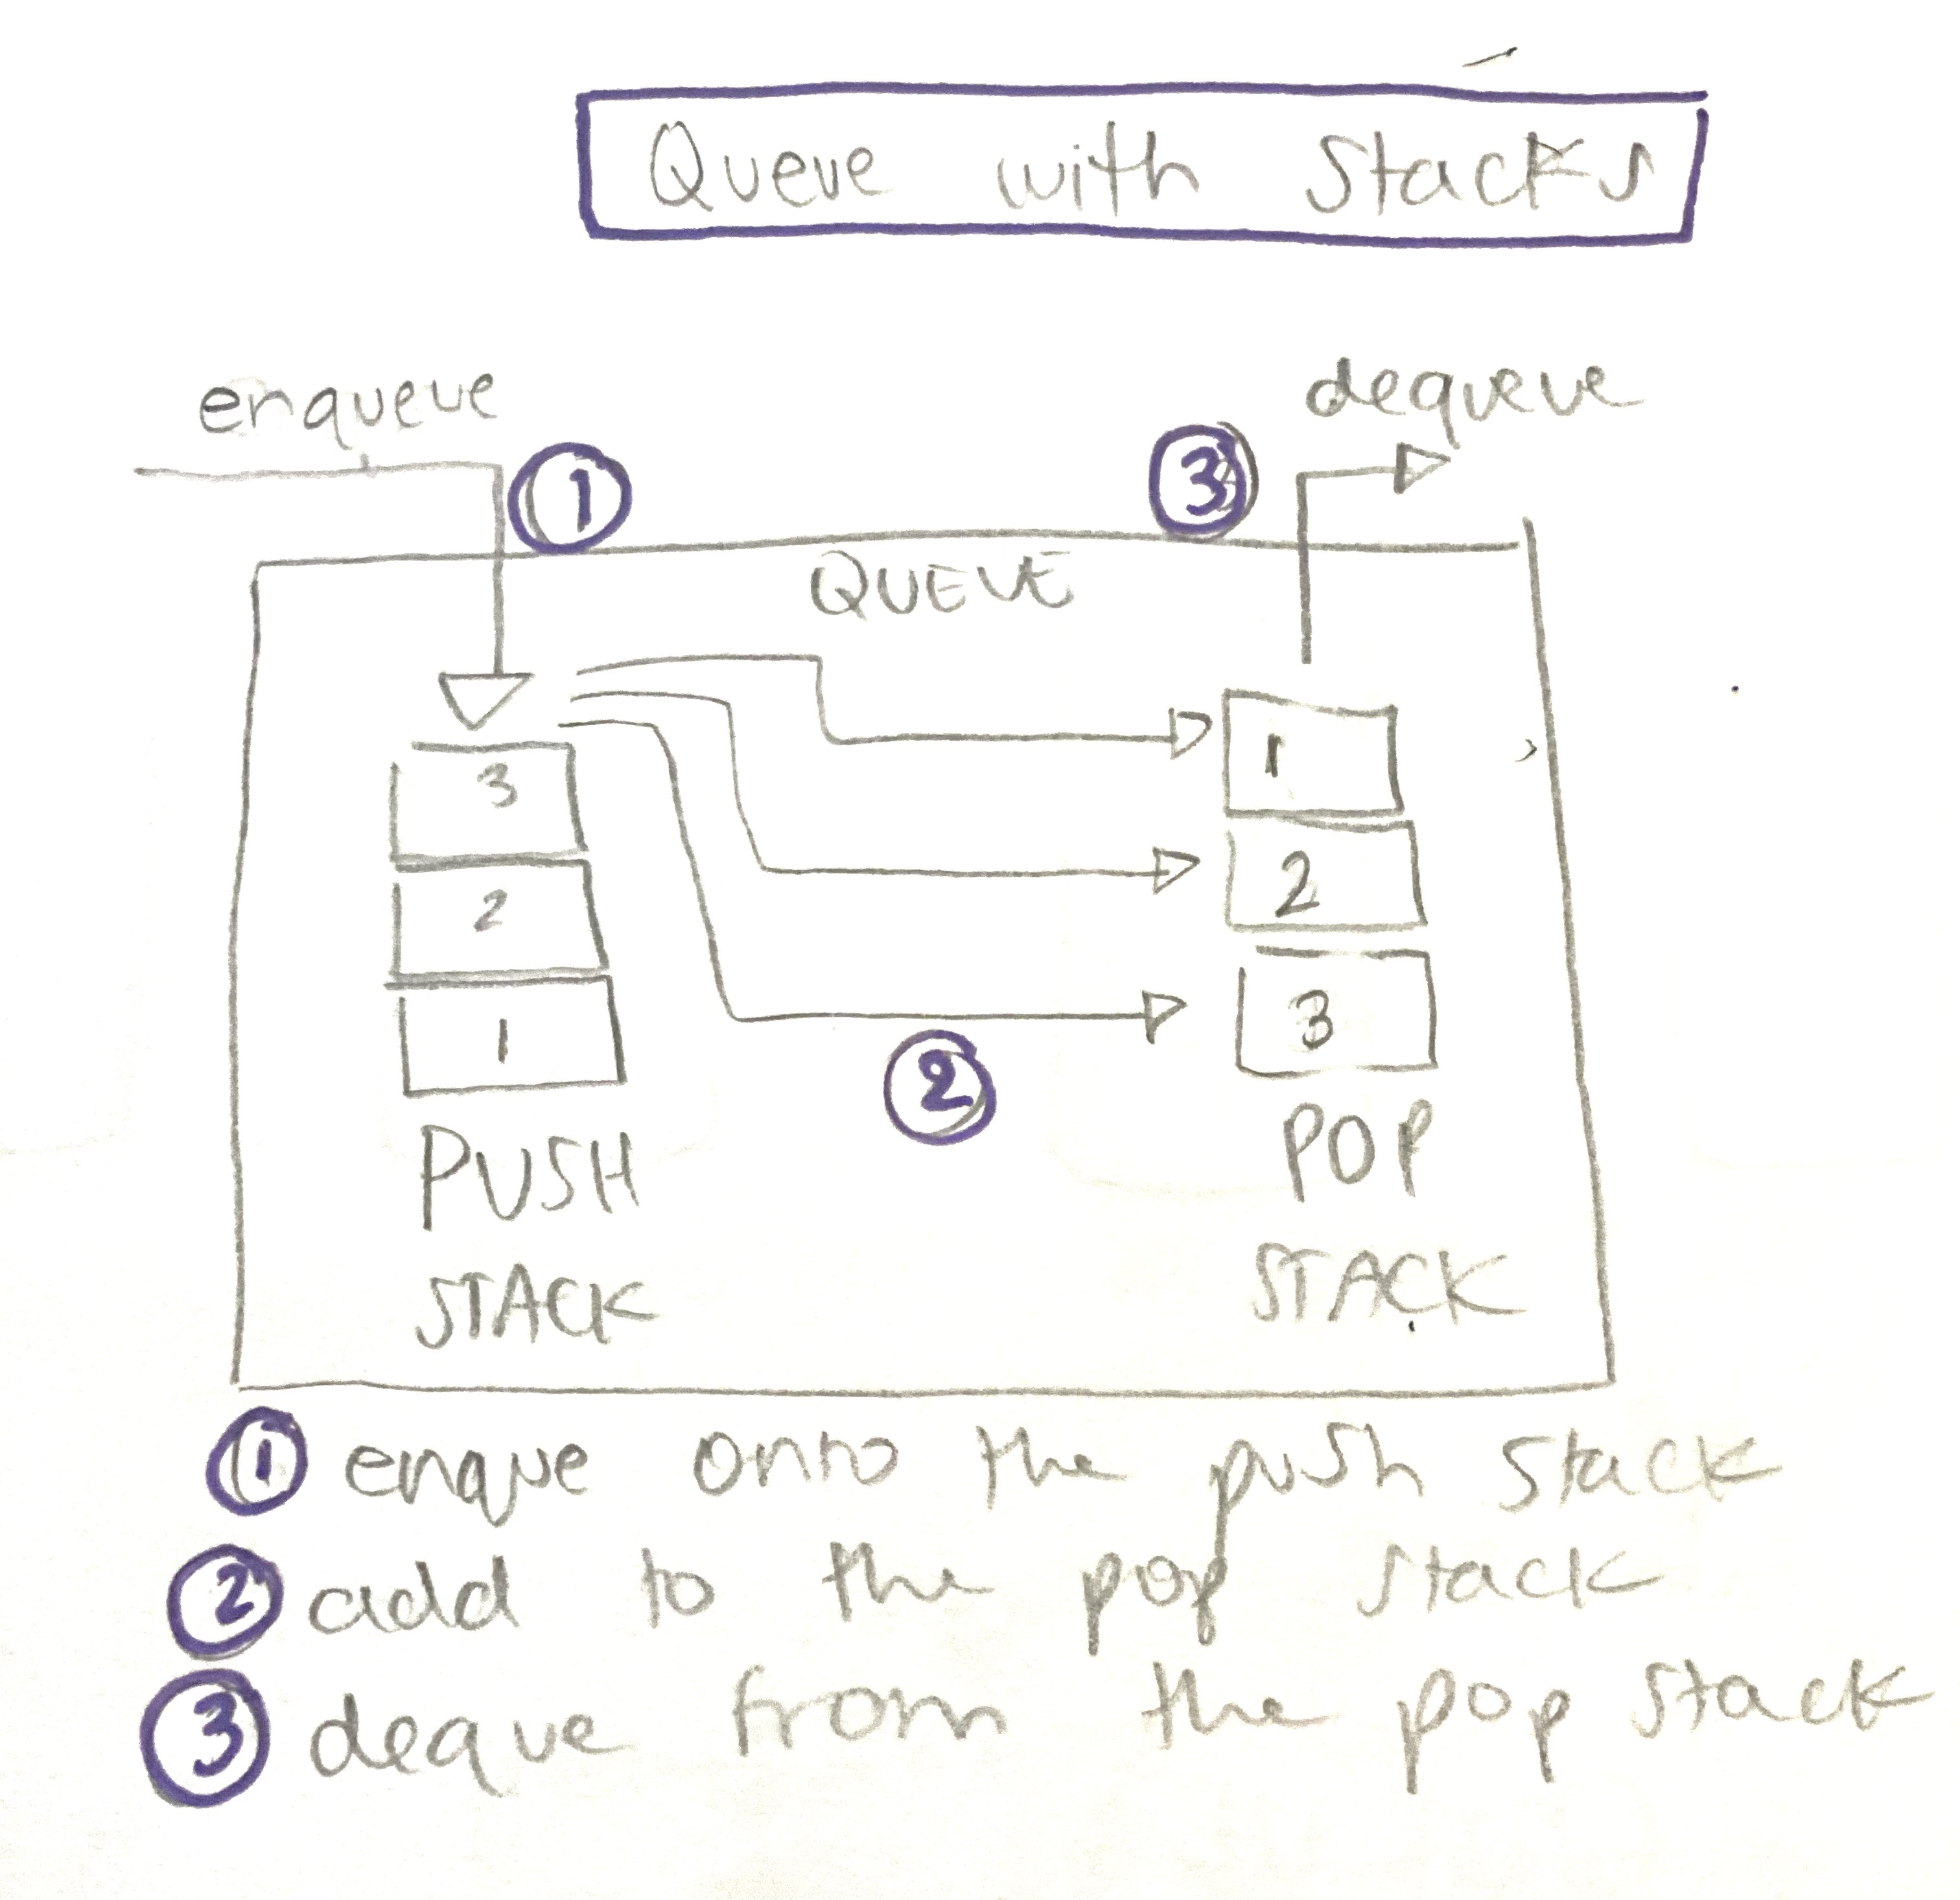 Queue with Stacks
enqueue
dequeue
1
3
QUEUE
3
1
2
2
1
3
2
PUSH
STACK
POP
STACK
1 enque onto the push stack
2 add to the pop stack
3 deque from the pop stack